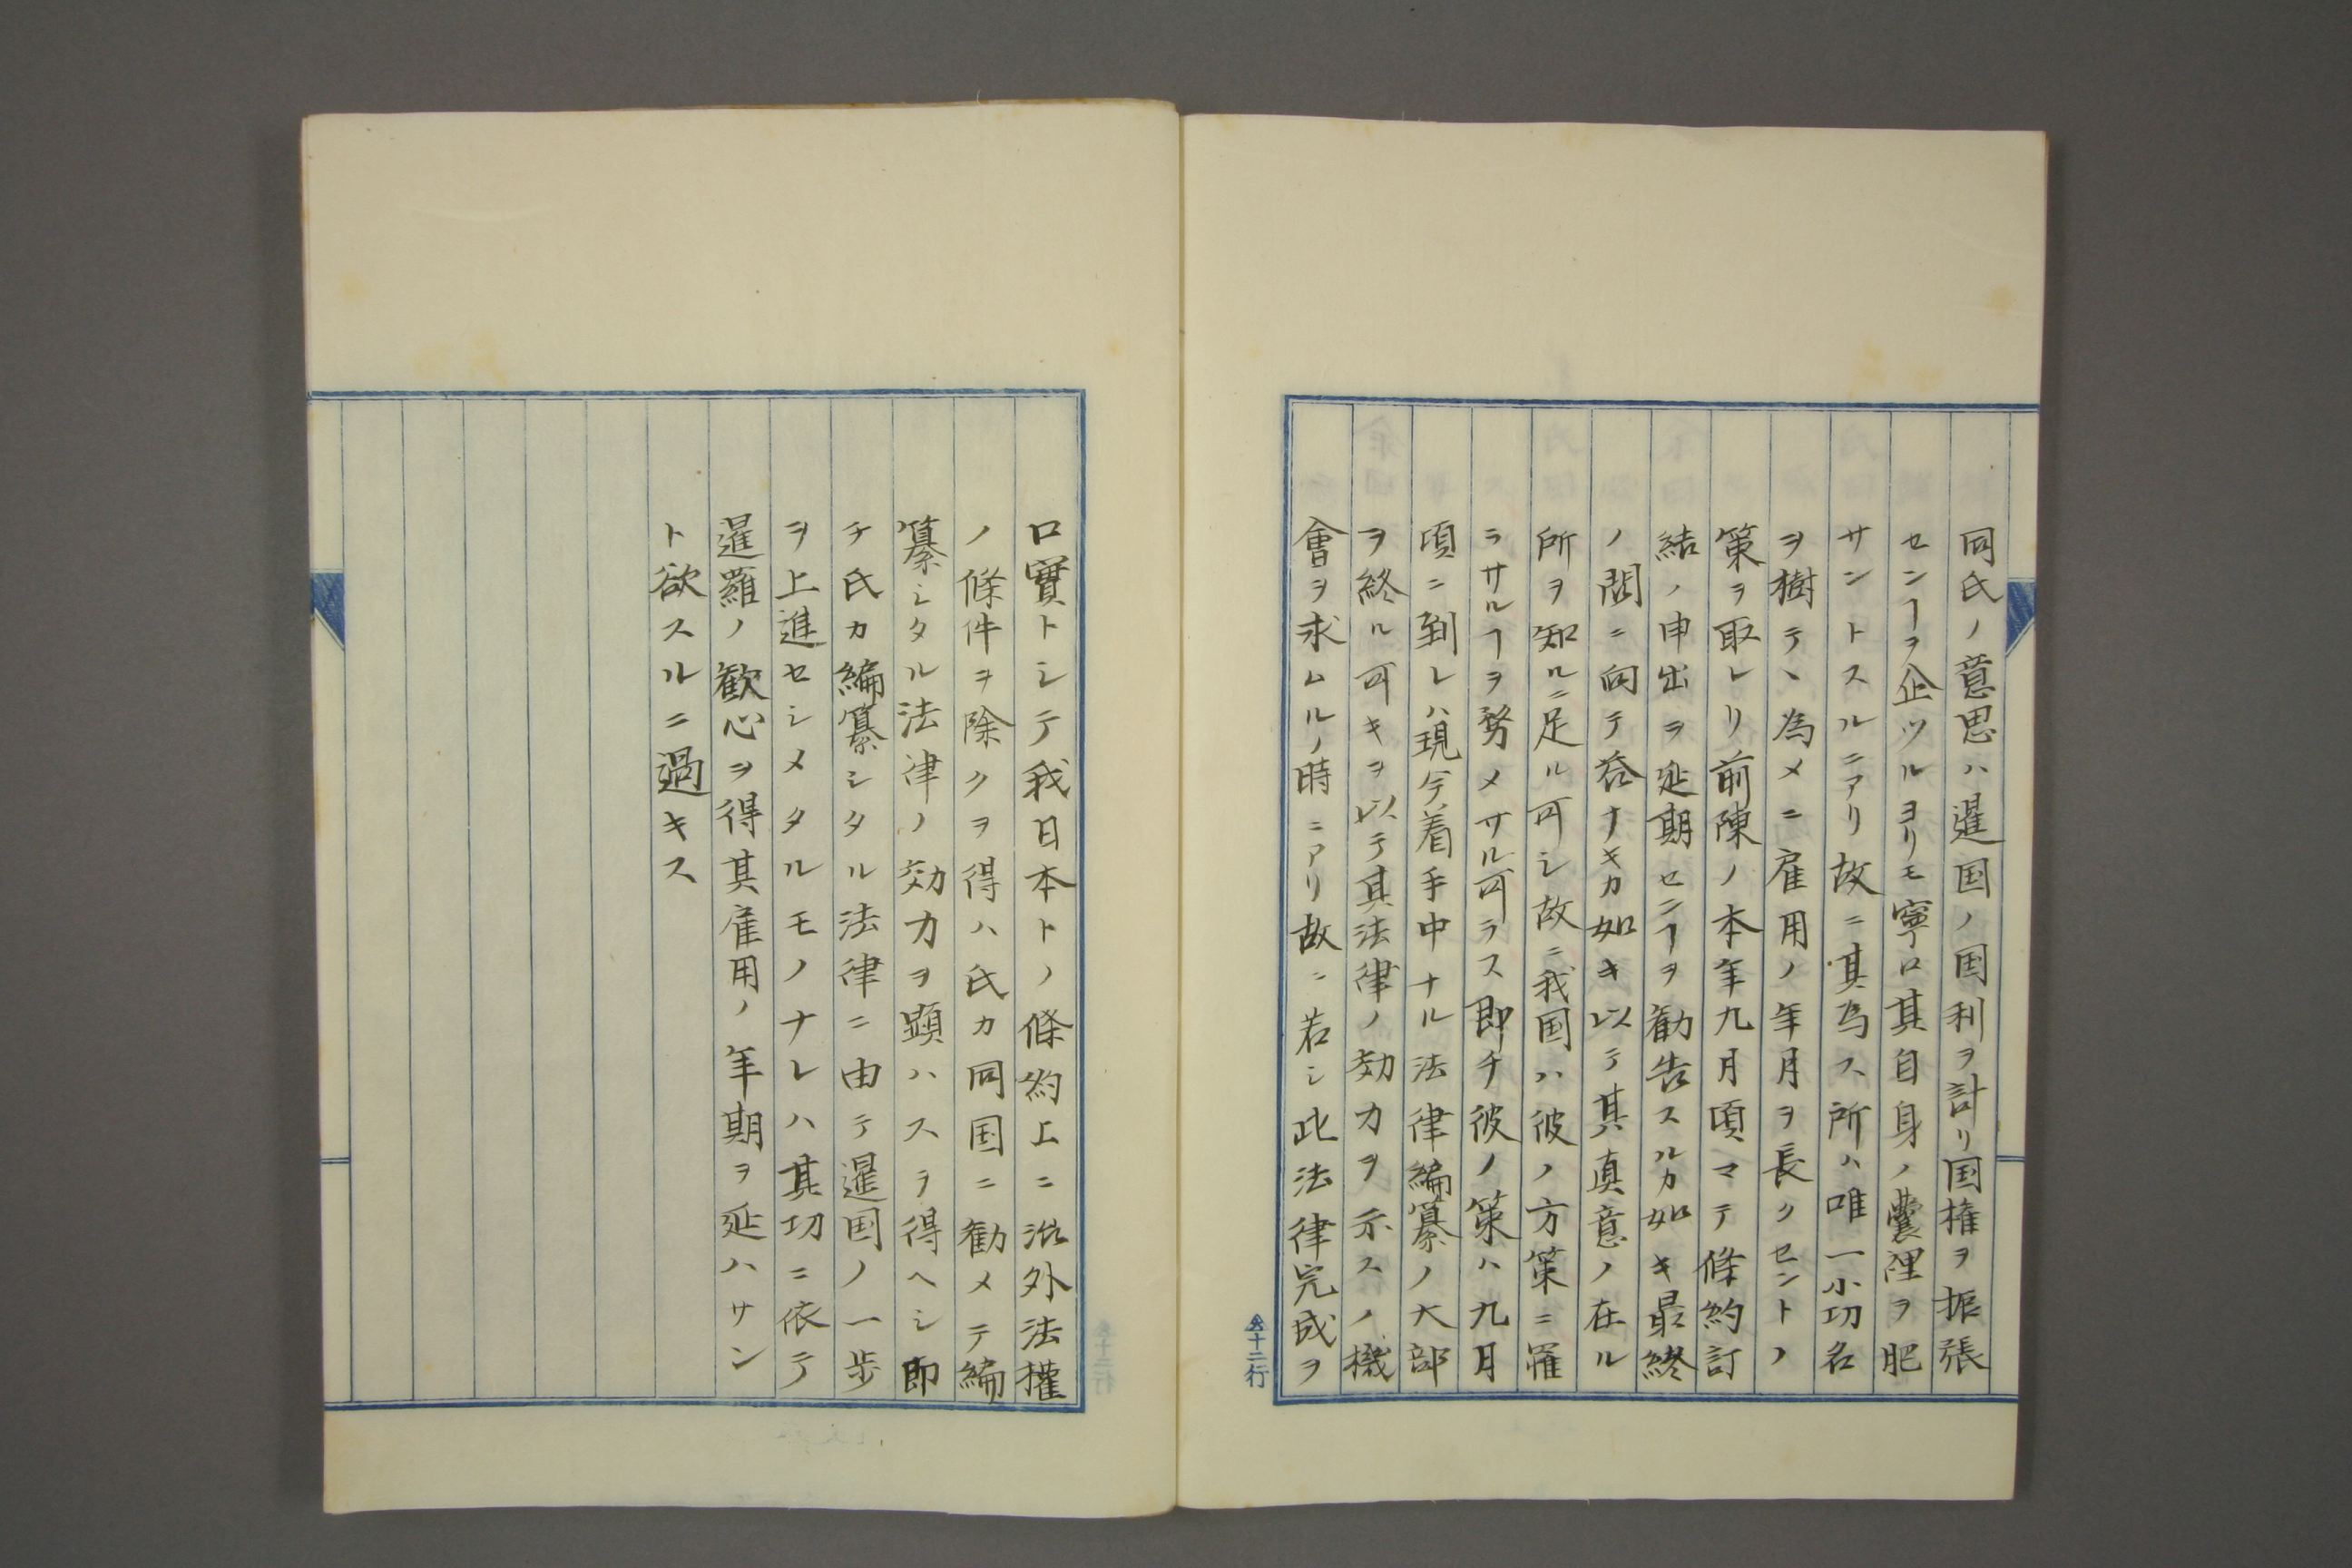 同氏ノ意思ハ暹国ノ国利ヲ計リ国権ヲ振張
センヿヲ企ツルヨリモ寧ロ其自身ノ嚢裡ヲ肥
サントスルニアリ故ニ其為ス所ハ唯一小功名
ヲ樹テヽ為メニ雇用ノ年月ヲ長クセントノ
策ヲ取レリ前陳ノ本年九月頃マテ條約訂
結ノ申出ヲ延期センヿヲ勧告スルカ如キ最終
ノ問ニ向テ答ナキカ如キ以テ其真意ノ在ル
所ヲ知ルニ足ル可シ故ニ我国ハ彼ノ方策ニ罹
ラサルヿヲ努メサル可ラス即チ彼ノ策ハ九月
頃ニ到レハ現今着手中ナル法律編纂ノ大部
ヲ終ル可キヲ以テ其法律ノ効力ヲ示スノ機
會ヲ求ムルノ時ニアリ故ニ若シ此法律完成ヲ
口實トシテ我日本トノ條約上ニ治外法權
ノ條件ヲ除クヲ得ハ氏カ同国ニ勧メテ編
纂シタル法律ノ効力ヲ顕ハスヲ得ヘシ即
チ氏カ編纂シタル法律ニ由テ暹国ノ一歩
ヲ上進セシメタルモノナレハ其切ニ依テ
暹羅ノ歓心ヲ得其雇用ノ年期ヲ延ハサン
ト欲スルニ過キス
十二行